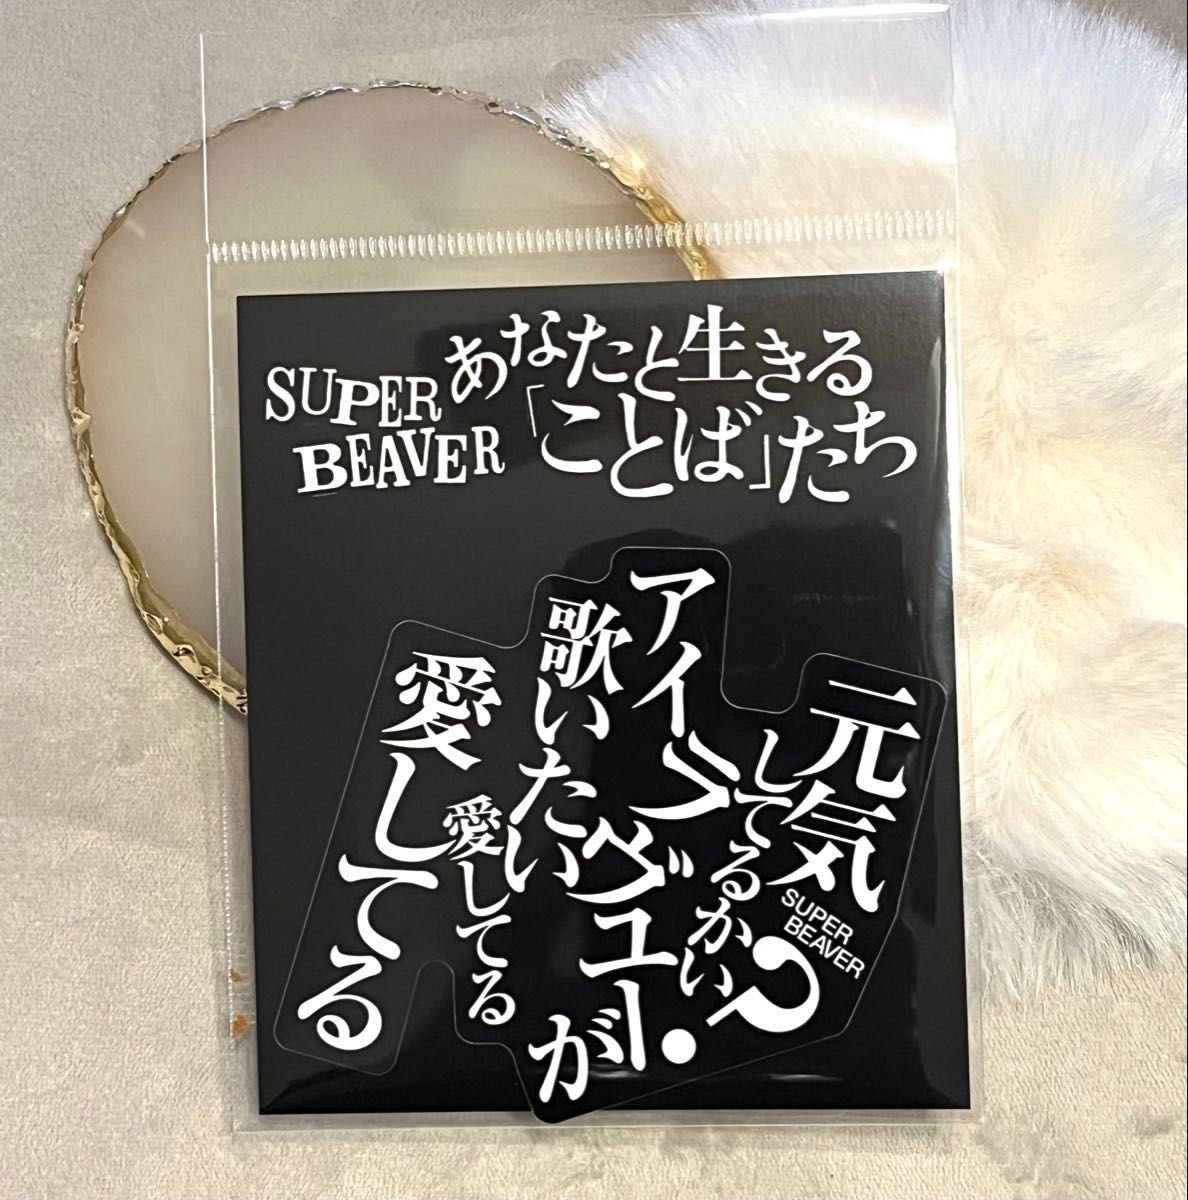 SUPER
BEAVER
あなたと生きる
「ことば」たち
元気
してるかい?
SUPER
BEAVER
アイラヴユー.
が
歌いたい
愛してる
愛してる